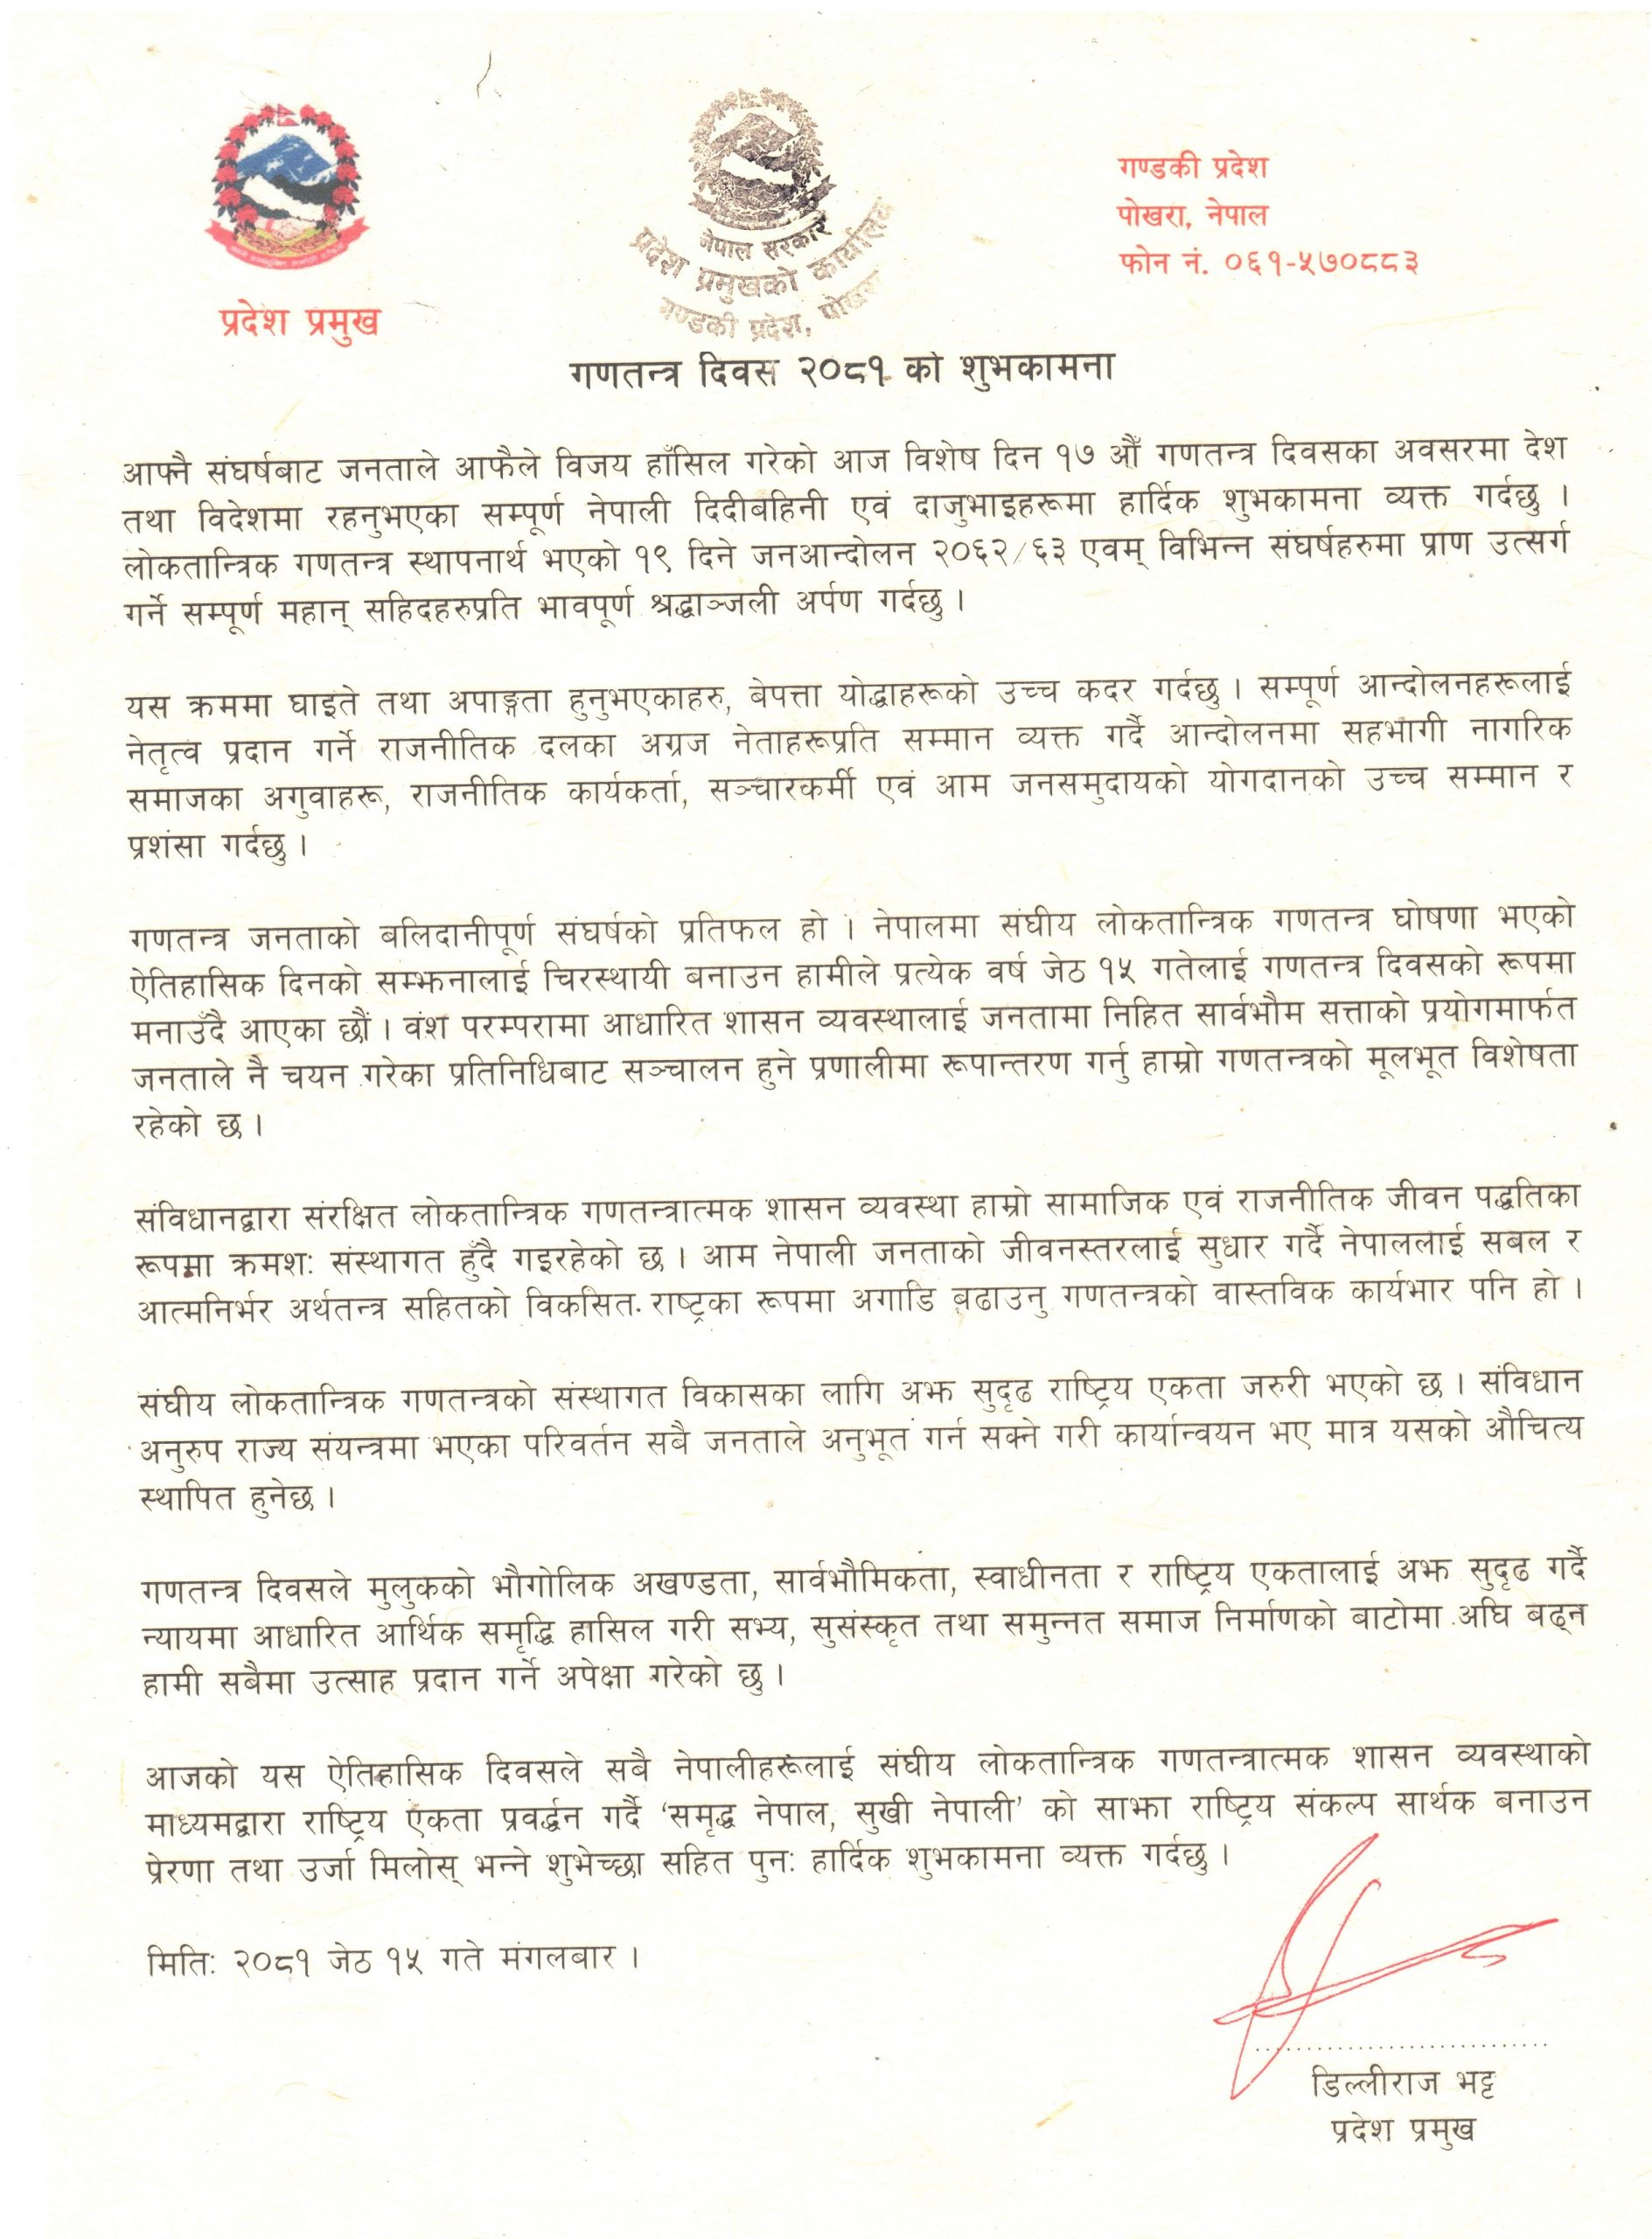 प्रदेश प्रमुख
नेपाल सरकार
प्रदेश प्रमुखको कार्यालय
गण्डकी प्रदेश, पोखरा
गण्डकी प्रदेश
पोखरा, नेपाल
फोन नं. ०६१-५७०८८३
गणतन्त्र दिवस २०८१ को शुभकामना
आफ्नै संघर्षबाट जनताले आफैले विजय हाँसिल गरेको आज विशेष दिन १७ औँ गणतन्त्र दिवसका अवसरमा देश
तथा विदेशमा रहनुभएका सम्पूर्ण नेपाली दिदीबहिनी एवं दाजुभाइहरूमा हार्दिक शुभकामना व्यक्त गर्दछु ।
लोकतान्त्रिक गणतन्त्र स्थापनार्थ भएको १९ दिने जनआन्दोलन २०६२/६३ एवम् विभिन्न संघर्षहरुमा प्राण उत्सर्ग
गर्ने सम्पूर्ण महान् सहिदहरुप्रति भावपूर्ण श्रद्धाञ्जली अर्पण गर्दछु ।
यस क्रममा घाइते तथा अपाङ्गता हुनुभएकाहरु, बेपत्ता योद्धाहरूको उच्च कदर गर्दछु । सम्पूर्ण आन्दोलनहरूलाई
नेतृत्व प्रदान गर्ने राजनीतिक दलका अग्रज नेताहरूप्रति सम्मान व्यक्त गर्दै आन्दोलनमा सहभागी नागरिक
समाजका अगुवाहरू, राजनीतिक कार्यकर्ता, सञ्चारकर्मी एवं आम जनसमुदायको योगदानको उच्च सम्मान र
प्रशंसा गर्दछु ।
गणतन्त्र जनताको बलिदानीपूर्ण संघर्षको प्रतिफल हो । नेपालमा संघीय लोकतान्त्रिक गणतन्त्र घोषणा भएको
ऐतिहासिक दिनको सम्झनालाई चिरस्थायी बनाउन हामीले प्रत्येक वर्ष जेठ १५ गतेलाई गणतन्त्र दिवसको रूपमा
मनाउँदै आएका छौं । वंश परम्परामा आधारित शासन व्यवस्थालाई जनतामा निहित सार्वभौम सत्ताको प्रयोगमार्फत
जनताले नै चयन गरेका प्रतिनिधिबाट सञ्चालन हुने प्रणालीमा रूपान्तरण गर्नु हाम्रो गणतन्त्रको मूलभूत विशेषता
रहेको छ ।
संविधानद्वारा संरक्षित लोकतान्त्रिक गणतन्त्रात्मक शासन व्यवस्था हाम्रो सामाजिक एवं राजनीतिक जीवन पद्धतिका
रूपमा क्रमशः संस्थागत हुँदै गइरहेको छ । आम नेपाली जनताको जीवनस्तरलाई सुधार गर्दै नेपाललाई सबल र
आत्मनिर्भर अर्थतन्त्र सहितको विकसित राष्ट्रका रूपमा अगाडि बढाउनु गणतन्त्रको वास्तविक कार्यभार पनि हो ।
संघीय लोकतान्त्रिक गणतन्त्रको संस्थागत विकासका लागि अझ सुदृढ राष्ट्रिय एकता जरुरी भएको छ । संविधान
अनुरुप राज्य संयन्त्रमा भएका परिवर्तन सबै जनताले अनुभूत गर्न सक्ने गरी कार्यान्वयन भए मात्र यसको औचित्य
स्थापित हुनेछ ।
गणतन्त्र दिवसले मुलुकको भौगोलिक अखण्डता, सार्वभौमिकता, स्वाधीनता र राष्ट्रिय एकतालाई अझ सुदृढ गर्दै
न्यायमा आधारित आर्थिक समृद्धि हासिल गरी सभ्य, सुसंस्कृत तथा समुन्नत समाज निर्माणको बाटोमा अघि बढ्न
हामी सबैमा उत्साह प्रदान गर्ने अपेक्षा गरेको छु ।
आजको यस ऐतिहासिक दिवसले सबै नेपालीहरूलाई संघीय लोकतान्त्रिक गणतन्त्रात्मक शासन व्यवस्थाको
माध्यमद्वारा राष्ट्रिय एकता प्रवर्द्धन गर्दै ‘समृद्ध नेपाल, सुखी नेपाली’ को साझा राष्ट्रिय संकल्प सार्थक बनाउन
प्रेरणा तथा उर्जा मिलोस् भन्ने शुभेच्छा सहित पुनः हार्दिक शुभकामना व्यक्त गर्दछु ।
मितिः २०८१ जेठ १५ गते मंगलबार ।
डिल्लीराज भट्ट
प्रदेश प्रमुख